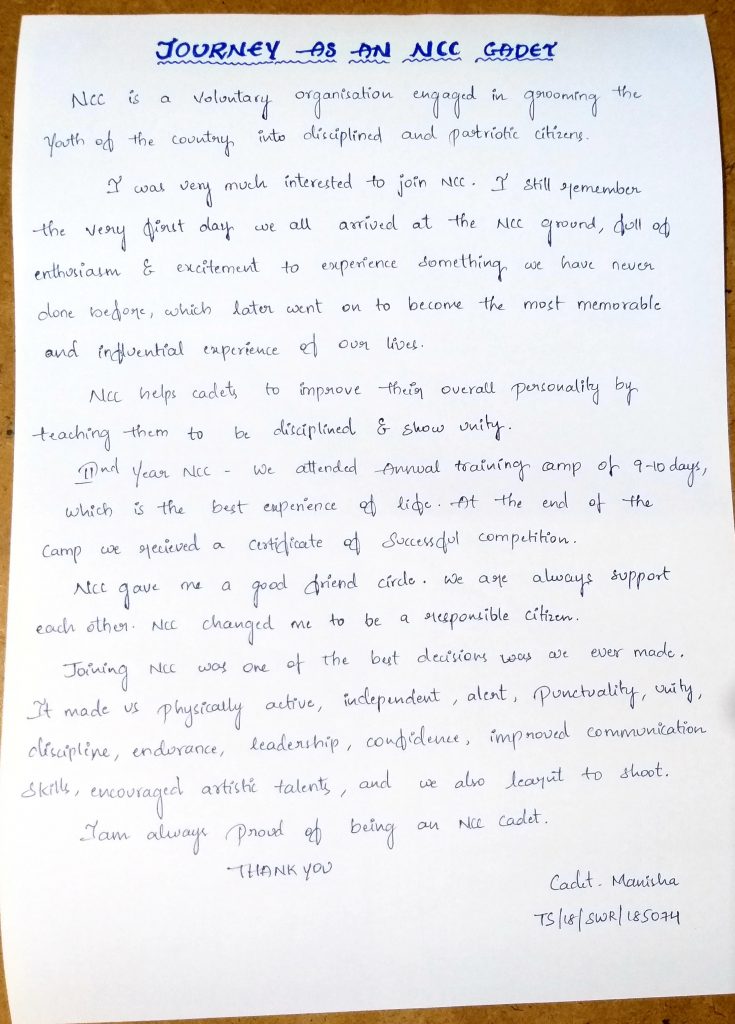 JOURNEY AS AN NCC CADET
NCC is a voluntary organisation engaged in grooming the
Youth of the country into disciplined and patriotic citizens.
I was very much interested to join NCC. I still remember
the very first day we all arrived at the NCC ground, full of
enthusiasm & excitement to experience something we have never
done before, which later went on to become the most memorable
and influential experience of our lives.
NCC helps cadets to improve their overall personality by
teaching them to be disciplined & show unity.
IInd Year NCC - We attended Annual training camp of 9-10 days,
which is the best experience of life. At the end of the
Camp we recieved a certificate of Successful competition.
NCC gave me a good friend circle. We are always support
each other. NCC changed me to be a responsible citizen.
Joining NCC was one of the best decisions was we ever made.
It made us physically active, independent, alert, punctuality, unity,
discipline, endurance, leadership, confidence, improved communication
skills, encouraged artistic talents, and we also learnt to shoot.
I am always proud of being an NCC cadet.
THANK YOU
Cadet. Manisha
TS/18/SWR/185074